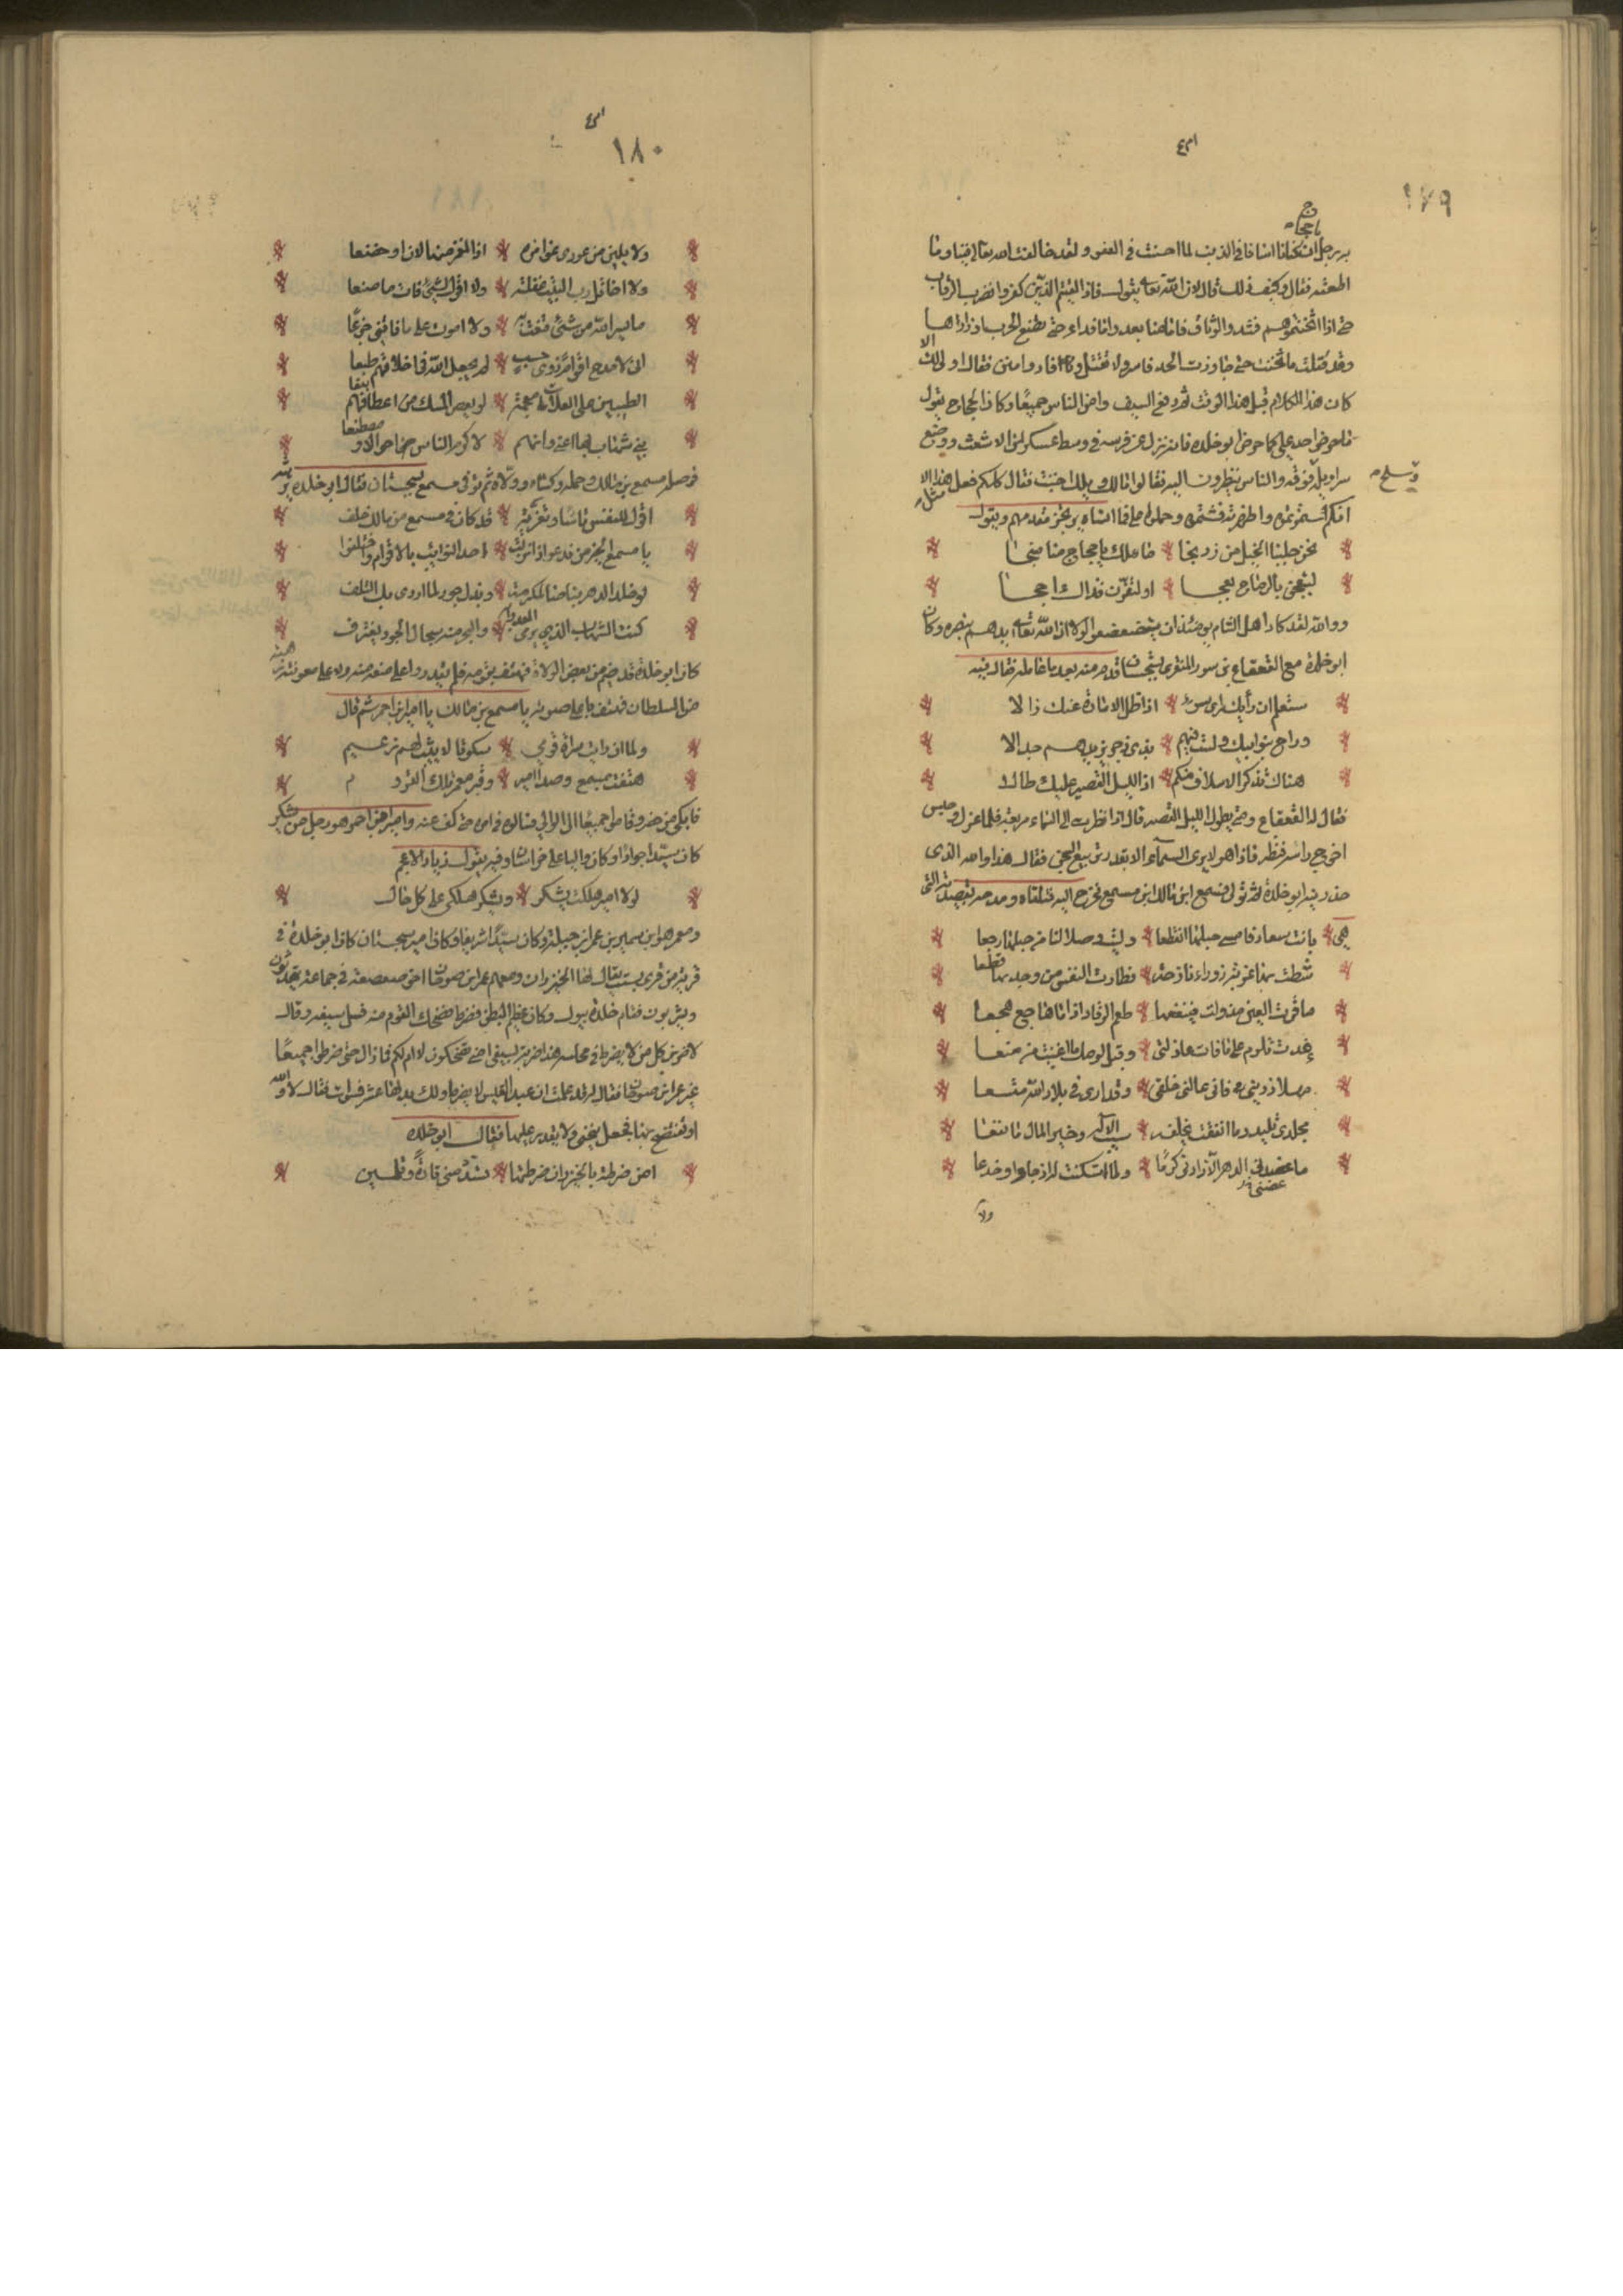 ١٧٩
يا حجاج
برجل لئن كنا اسانا في الذنب لما احسنت في العفو ولقد خالفت الله تعالى فينا وما
اطعته فقال وكيف ذلك قال لان الله تعالى يقول فاذا لقيتم الذين كفروا فضرب الرقاب
حتى اذا اثخنتموهم فشدوا الوثاق فاما منا بعد واما فداء حتى تضع الحرب اوزارها
وقد قتلت فاثخنت حتى جاوزت الحد فاسر ولا تقتل فاد او امنن فقال اولى لك الا
كان هذا الكلام قبل هذا الوقت ثم رفع السيف وامن الناس جميعا وكان الحجاج يقول
ما حرض احد على كما حرض ابو خلده فانه نزل عن فرسه في وسط عسكر ابن الاشعث ووضع
سراويله فوقه والناس ينظرون اليه فقالوا مالك ويلك اجننت فقال كلكم فعل مثل هذا الا
وسلح
انكم سترتموه واظهرته فشتموه وحملوا على فما انساه يرتجز مقدمهم ويقول
نحن جلبنا الخيل من زرنجا مالك يا حجاج منا منجا
لتبعجن بالرماح بعجا او لتفرن فذاك احجا
ووالله لقد كاد اهل الشام يومئذ ان يتضعضعوا لولا ان الله تعالى ايدهم بنصره وكان
ابو خلدة مع القعقاع بن سور المنقرى بسجستان فذم منه بعد ما عامله فقال فيه
ستعلم ان رأيك رأى سوء اذا ظل الامارة عنك زالا
وراح بنو ابيك ولست فيهم بذى زوج يزيدهم جمالا
هناك تذكر الاسلاف منكم اذا الليل القصير عليك طالا
فقال له القعقاع ومتى يطول الليل القصير قال اذا نظرت الى السماء مربعة فلما عزل وحبس
اخرج راسه فنظر فاذا هو لا يرى السماء الا بقدر تربيع السجن فقال هذا والله الذى
حذرنيه ابو خلدة ثم تولى مسمع ابن مالك ابن مسمع فخرج اليه فتلقاه ومدحه بقصيدته التى
هى بانت سعاد فامسى حبلها انقطعا وليت وصلا لنا من حبلها رجعا
شطت بها غربة زوراء نازحة فطارت النفس من وجد بها قطعا
ما قرت العين مذ ولت فينفعها طعم الرقاد اذا ما هاجع هجعا
غدت تلوم على ما فات عاذلتى وقبل لومك ما اغنيت من منعا
مهلا ذرينى فانى عالنى خلقى وقد ارى فى بلاد الله متسعا
مجدى تليد وما انفقت يخلفه سيب الاله وخير المال ما نفعا
ما عضنى الدهر الا زادنى كرما ولا استكنت له ان جار او خدعا
ولا
١٨٠
ولا يلين من عودى غوامزه اذا المغمز منها لان او خضعا
ولا اخاتل رب البيت غفلته ولا اقول لشئ فات ما صنعا
ما يسر الله من شئ قنعت به ولا اموت على ما فاتنى جزعا
انى لامدح اقواما ذوى حسب لم يجعل الله فى اخلاقهم طبعا
الطيبين على العلات معجمة لو يعصر المسك من اعطافهم انبقا
بنى شهاب بها اعنى وانهم لاكرم الناس اخلاقا ومصطنعا
فوصله مسمع بن مالك وحمله وكساه وولاه ثم توفى مسمع بسجستان فقال ابو خلدة يرثيه
اقول للنفس تاساء وتعزية قد كان فى مسمع من مالك خلف
يا مسمع الخير من ندعو اذا نزلت احدى النوائب بالاقوام واختلفوا
كنت الشهاب الذى يرمى العدو به والبحر منه سجال الجود يغترف
كان ابو خلدة قد ضيم من بعض الولاة فهتف بقومه فلم يقدروا على منعه منه ولا على معونته هيبة
من السلطان فهتف باعلى صوته يا مسمع بن مالك يا امير ابن احمر ثم قال
ولما ان رايت سراة قومى سكوتا لا يثوب لهم زعيم
هتفت بمسمع وصدى امير وقبر معمر تلك القروم
فابكى من حضر وقاموا جميعا الى الوالى فسالوه فى امره حتى كف عنه وامير ابن احمر هو رجل من يشكر
كان سيدا جوادا وكان واليا على خراسان وفيه يقول زياد الاعجم
لولا امير هلكت يشكر ويشكر هلكى على كل حال
ومعمر هو ابن سمير بن عمر ابن جبلة وكان سيدا شريفا وكان امير سجستان كان ابو خلدة فى
قرية من قرى بست يقال لها الخيزران ومعهم عمر ابن صوحان اخو صعصعة فى جماعة يتحدثون
ويشربون فقام خلدة يبول وكان عظيم البطن فضرط فضحك القوم منه فسل سيفه وقال
لاضربن كل من لا يضرط فى مجلسه هذا ضربة بسيفى امنى تضحكون لا ام لكم فما زال حتى ضرطوا جميعا
غير عمر ابن صوحان فقال له قد علمت ان عبد القيس لا يضرط ولك بدلها عشر فسوات فقال لا والله
او تفتضح بها فجعل ينحنى ولا يقدر عليها فقال ابو خلده
امن ضرطة بالخيزران ضرطتها تشدد منى تارة وتلين